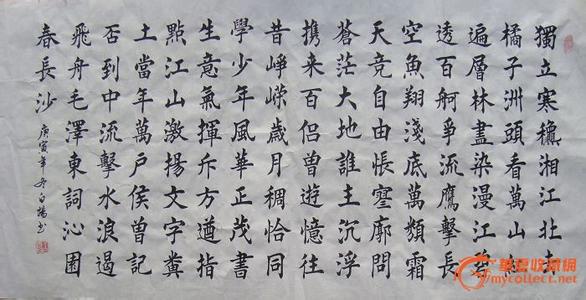 獨立寒穐湘江北去
橘子洲頭看萬山紅
遍層林盡染漫江碧
透百舸爭流鷹擊長
空魚翔淺底萬類霜
天竞自由悵寥廓問
蒼茫大地誰主沉浮
携来百侣曾遊憶往
昔崢嶸歲月稠恰同
學少年風華正茂書
生意氣揮斥方遒指
點江山激揚文字糞
土當年萬户侯曾記
否到中流擊水浪遏
飛舟毛澤東詞沁園
春長沙
庚寅年冬
华夏收藏网
mycollect.net